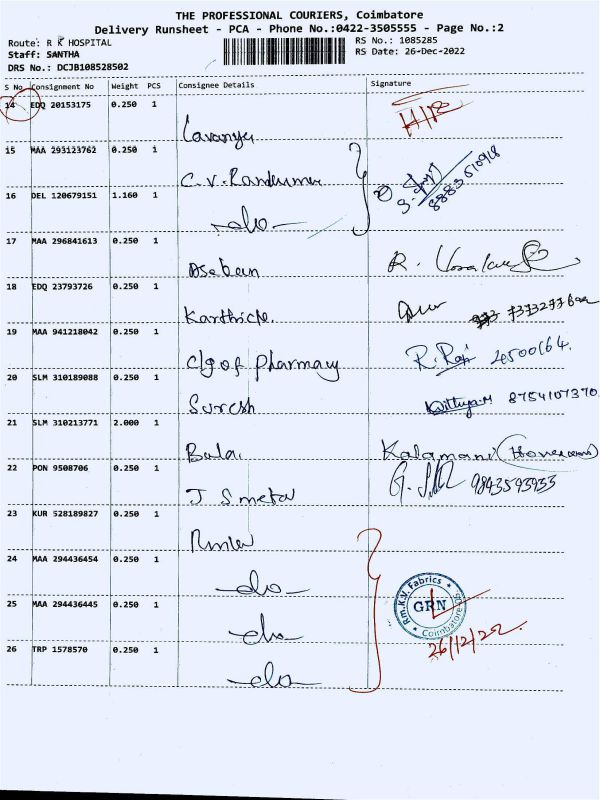 THE PROFESSIONAL COURIERS, Coimbatore
Delivery Runsheet - PCA - Phone No.:0422-3505555 - Page No.:2
Route: R K HOSPITAL
Staff: SANTHA
DRS No.: DCJB108528502
RS No.: 1085285
RS Date: 26-Dec-2022
S No Consignment No Weight PCS Consignee Details Signature
14 EDQ 20153175 0.250 1
Lavanya
15 MAA 293123762 0.250 1
C.V. 8883510918
16 DEL 120679151 1.160 1
-do-
17 MAA 296841613 0.250 1
R.
18 EDQ 23793726 0.250 1
19 MAA 941218042 0.250 1
Clg of Pharmacy R. Raj
20 SLM 310189088 0.250 1
Suresh 8754107370
21 SLM 310213771 2.000 1
Bala. Kalamani
22 PON 9508706 0.250 1
J Smeta 9843593933
23 KUR 528189827 0.250 1
24 MAA 294436454 0.250 1
-do-
25 MAA 294436445 0.250 1
-do-
Rm.K.V. Fabrics
GRN
Coimbatore
26/12/22
26 TRP 1578570 0.250 1
-do-